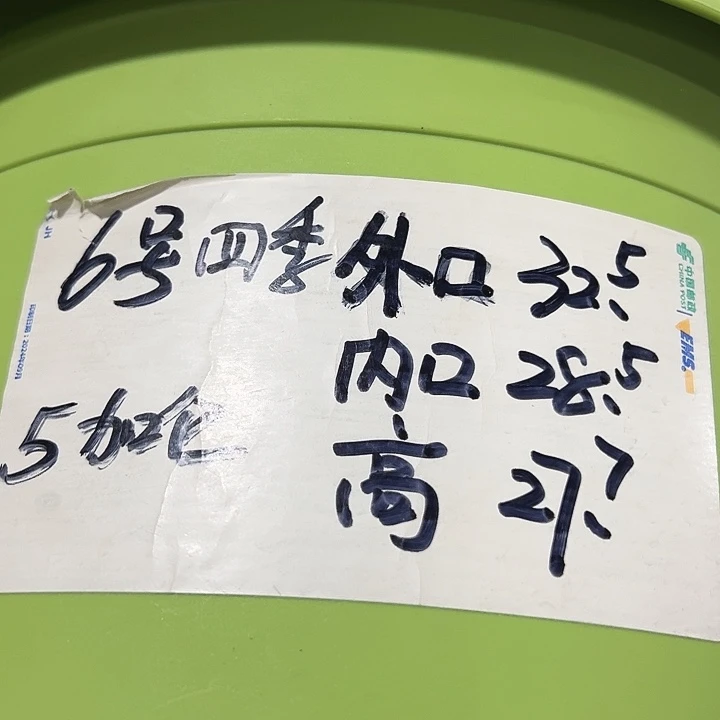 6号四季 外口 32.5
内口 28.5
5加仑
高 27.7
中国邮政
CHINA POST
EMS